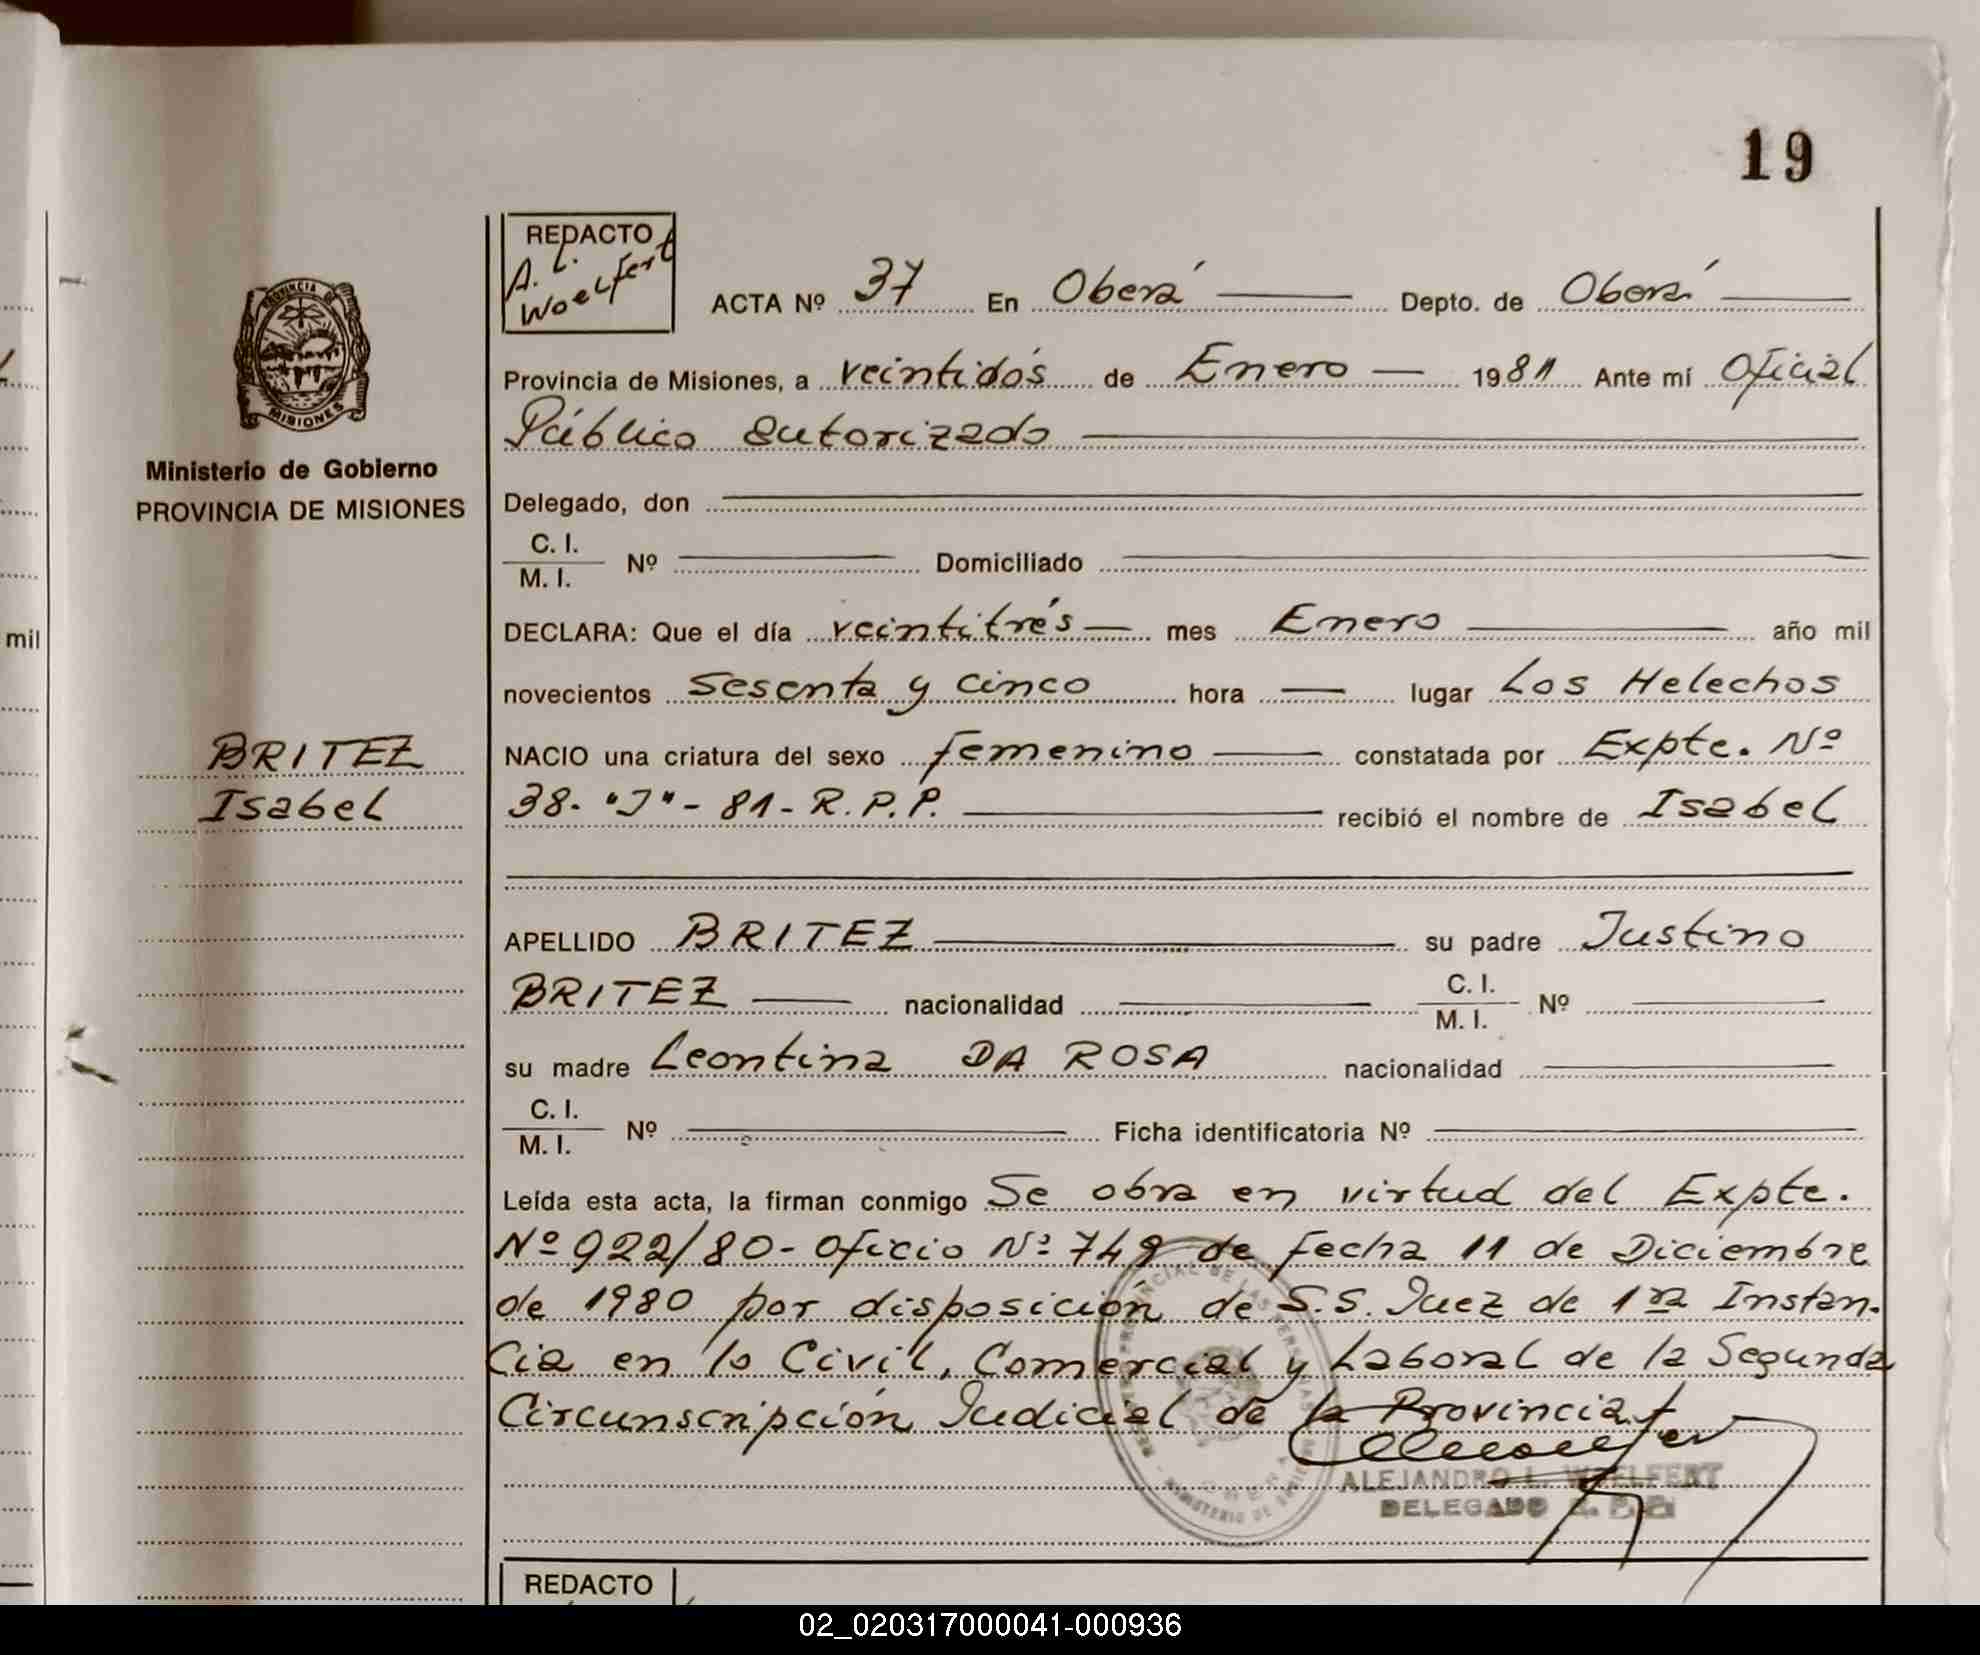 19
REDACTO
A. L. Woelfert
ACTA Nº 37 En Oberá Depto. de Oberá
Provincia de Misiones, a veintidós de Enero 1981 Ante mí Oficial
Público autorizado
PROVINCIA DE MISIONES
Ministerio de Gobierno
PROVINCIA DE MISIONES
Delegado, don
C. I.
M. I. Nº Domiciliado
DECLARA: Que el día veintitrés mes Enero año mil
mil
novecientos Sesenta y cinco hora lugar Los Helechos
BRITEZ
Isabel
NACIO una criatura del sexo femenino constatada por Expte. Nº
38- "J"- 81- R.P.P. recibió el nombre de Isabel
APELLIDO BRITEZ su padre Justino
BRITEZ nacionalidad C. I. M. I. Nº
su madre Leontina DA ROSA nacionalidad
C. I.
M. I. Nº Ficha identificatoria Nº
Leída esta acta, la firman conmigo Se obra en virtud del Expte.
Nº 922/80- Oficio Nº 749 de fecha 11 de Diciembre
de 1980 por disposición de S.S. Juez de 1ra Instan-
cia en lo Civil, Comercial y Laboral de la Segunda
Circunscripción Judicial de la Provincia
ALEJANDRO L. WOELFERT
DELEGADO
REDACTO
02_020317000041-000936